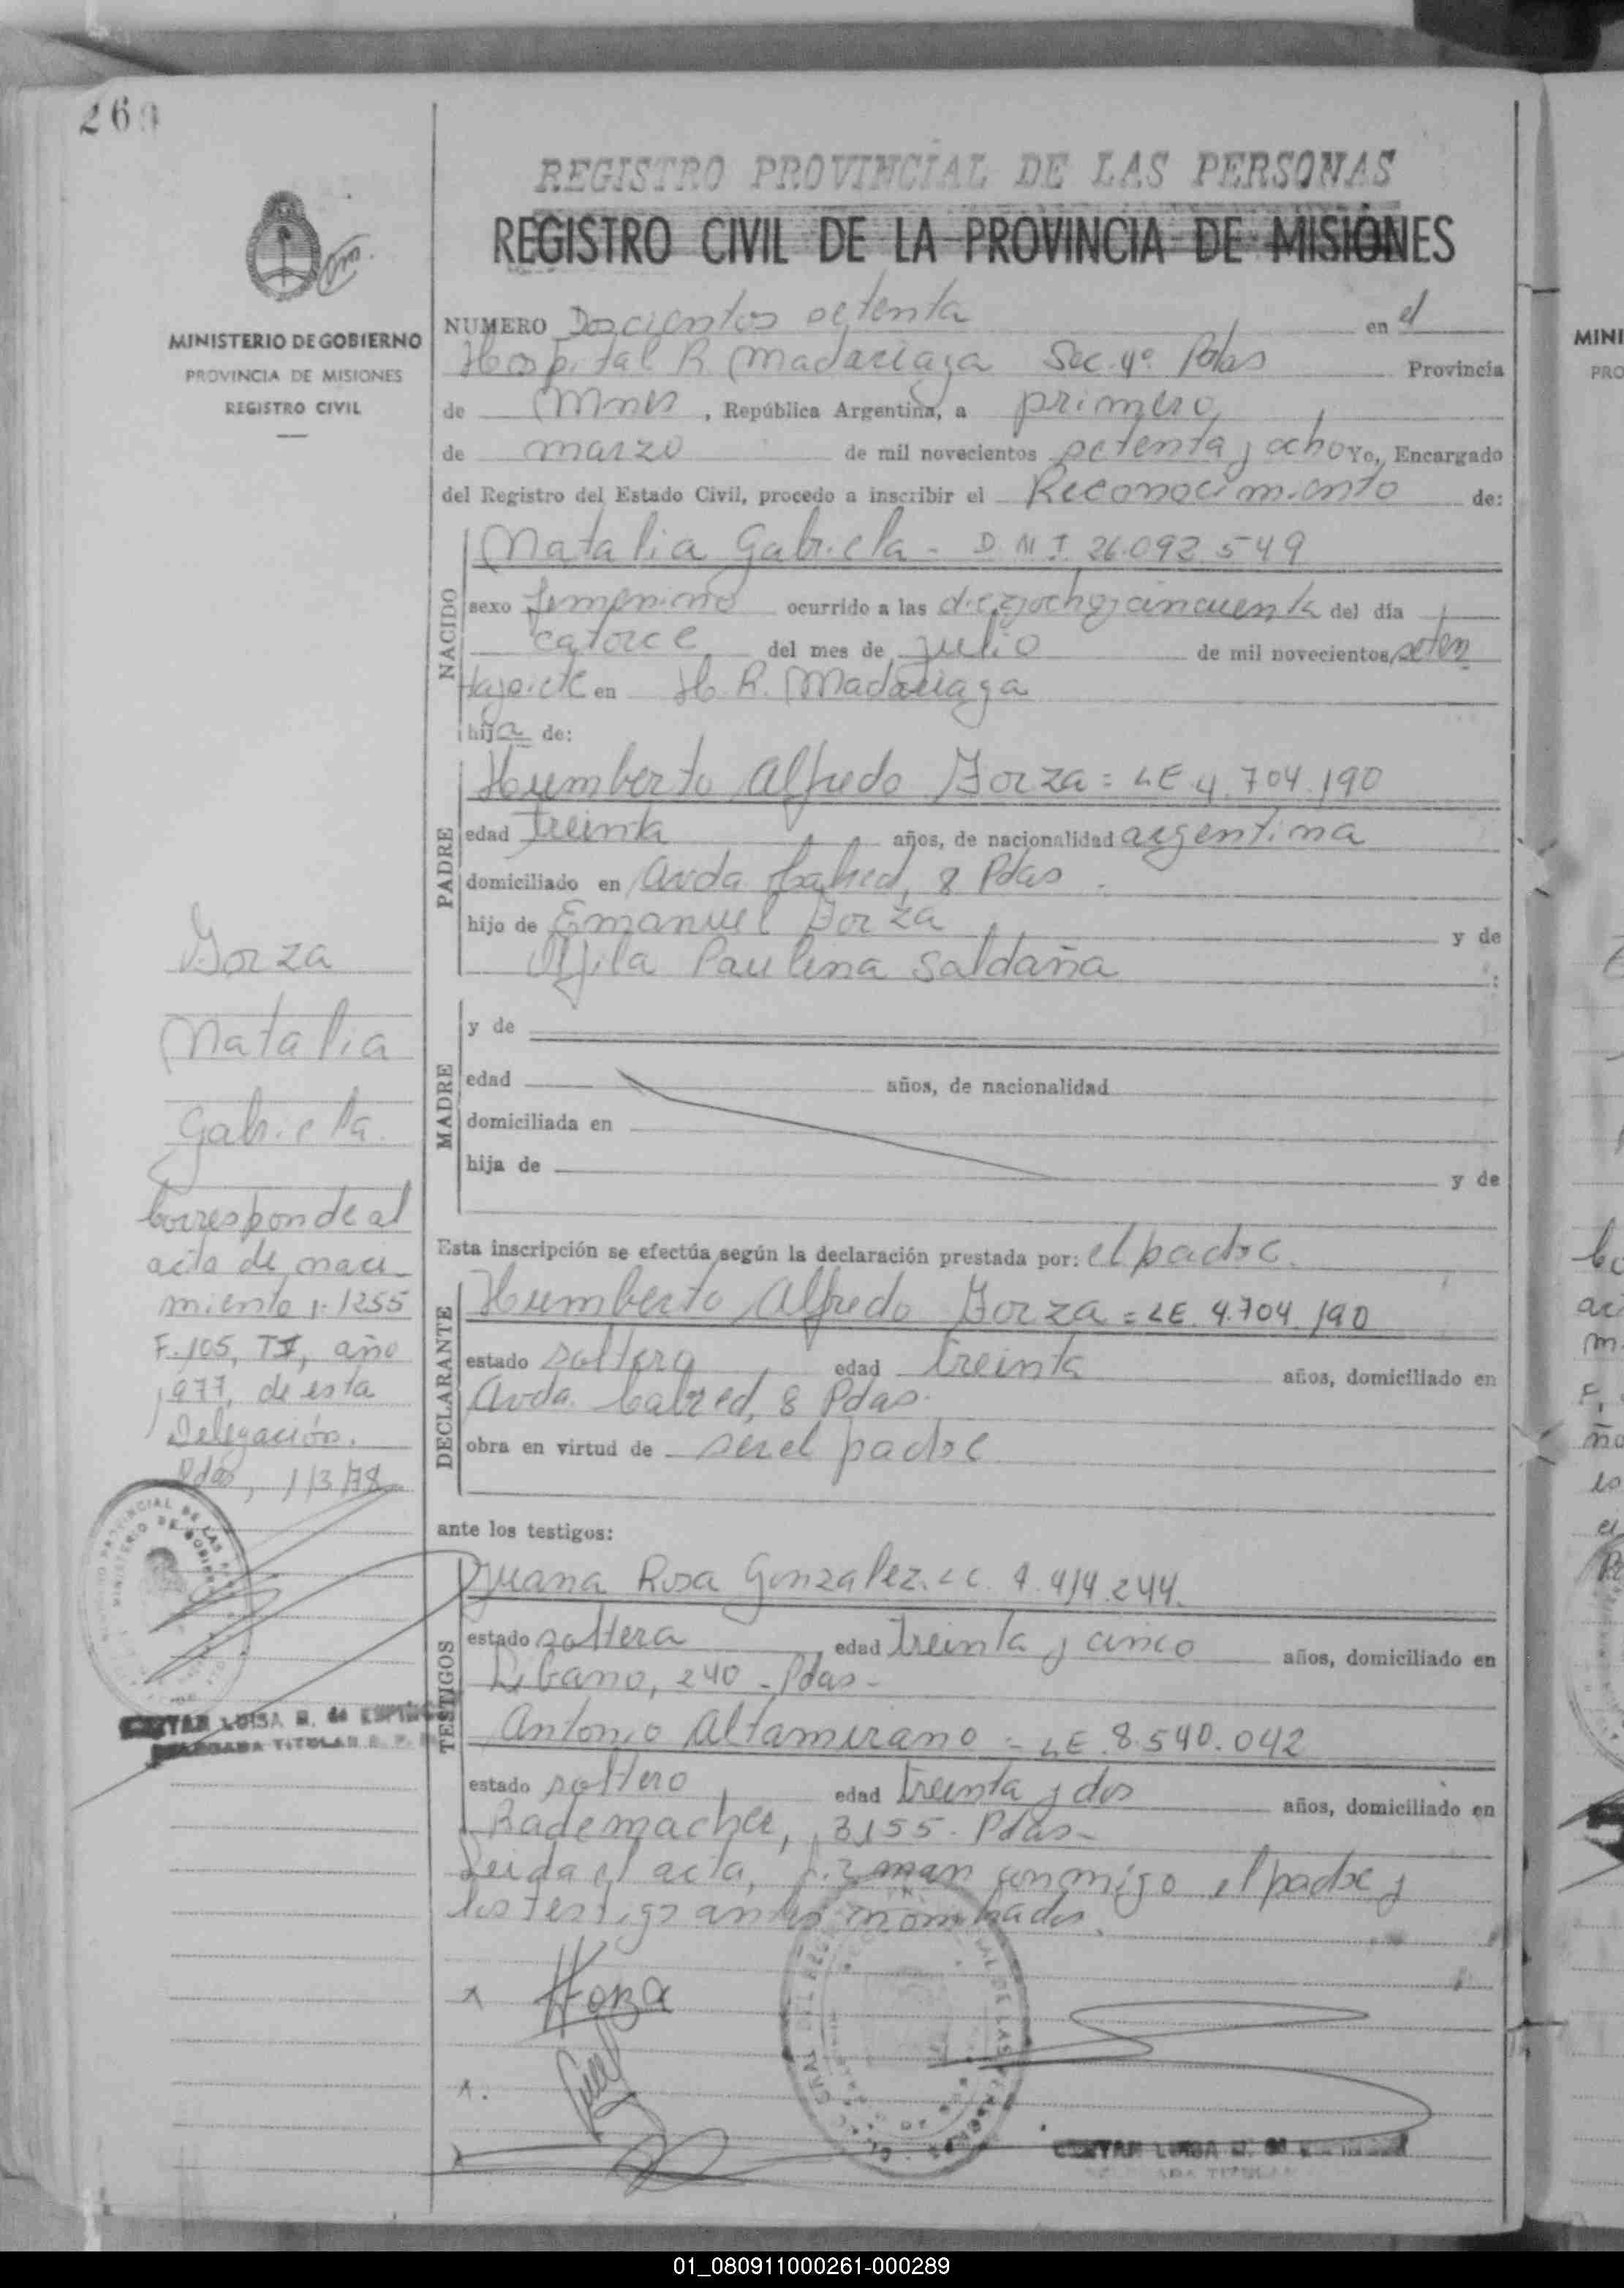 260
REGISTRO PROVINCIAL DE LAS PERSONAS
REGISTRO CIVIL DE LA PROVINCIA DE MISIONES
MINISTERIO DE GOBIERNO
PROVINCIA DE MISIONES
REGISTRO CIVIL
NUMERO Doscientos setenta en el
Hospital R Madariaga Sec. 4º Pdas Provincia
de Mnes, República Argentina, a primero
de marzo de mil novecientos setenta y ocho Yo, Encargado
del Registro del Estado Civil, procedo a inscribir el Reconocimiento de:
NACIDO
Natalia Gabriela - D N I. 26.092.549
sexo femenino ocurrido a las diez y ocho y cincuenta del día
catorce del mes de julio de mil novecientos seten
ta y siete en H. R. Madariaga
hija de:
PADRE
Humberto Alfredo Gorza = LE 4.704.190
edad treinta años, de nacionalidad argentina
domiciliado en Avda Cabred, 8 Pdas.
hijo de Emanuel Gorza y de
Paulina Saldaña
MADRE
y de
edad años, de nacionalidad
domiciliada en
hija de y de
Esta inscripción se efectúa según la declaración prestada por: el padre.
DECLARANTE
Humberto Alfredo Gorza = LE. 4.704.190
estado soltero edad treinta años, domiciliado en
Avda. Cabred, 8 Pdas.
obra en virtud de ser el padre
ante los testigos:
TESTIGOS
Juana Rosa Gonzalez. LC. 4.414.244.
estado soltera edad treinta y cinco años, domiciliado en
Libano, 240 - Pdas -
Antonio Altamirano - LE. 8.540.042
estado soltero edad treinta y dos años, domiciliado en
Rademacher, 3155. Pdas -
Leida el acta, firman conmigo el padre y
los testigos antes nombrados.
Gorza
Natalia
Gabriela
Corresponde al
acta de naci-
miento 1255
F. 105, T I, año
1977, de esta
Delegación.
Pdas, 1/3/78
LUISA
TITULAR
MINI
PRO
01_080911000261-000289